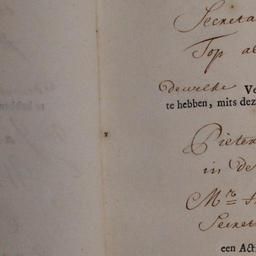 Secreta
Top al
dewelke Ve
te hebben, mits dez
Pieter
in de
Mr = 
Secret
een Act